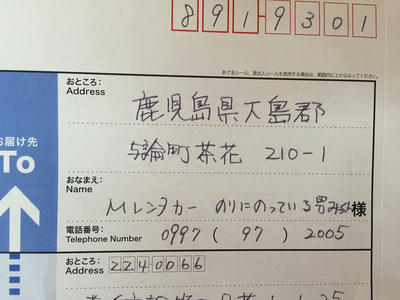 8919301
あて名シール、差出人シールを使用する場合は、範囲内に上からはってください。
お届け先
To
おところ:
Address
鹿児島県大島郡
与論町茶花 210-1
おなまえ:
Name
Mレンタカー のりにのっている男みちん様
電話番号:
Telephone Number
0997 ( 97 ) 2005
おところ:
Address
2240066